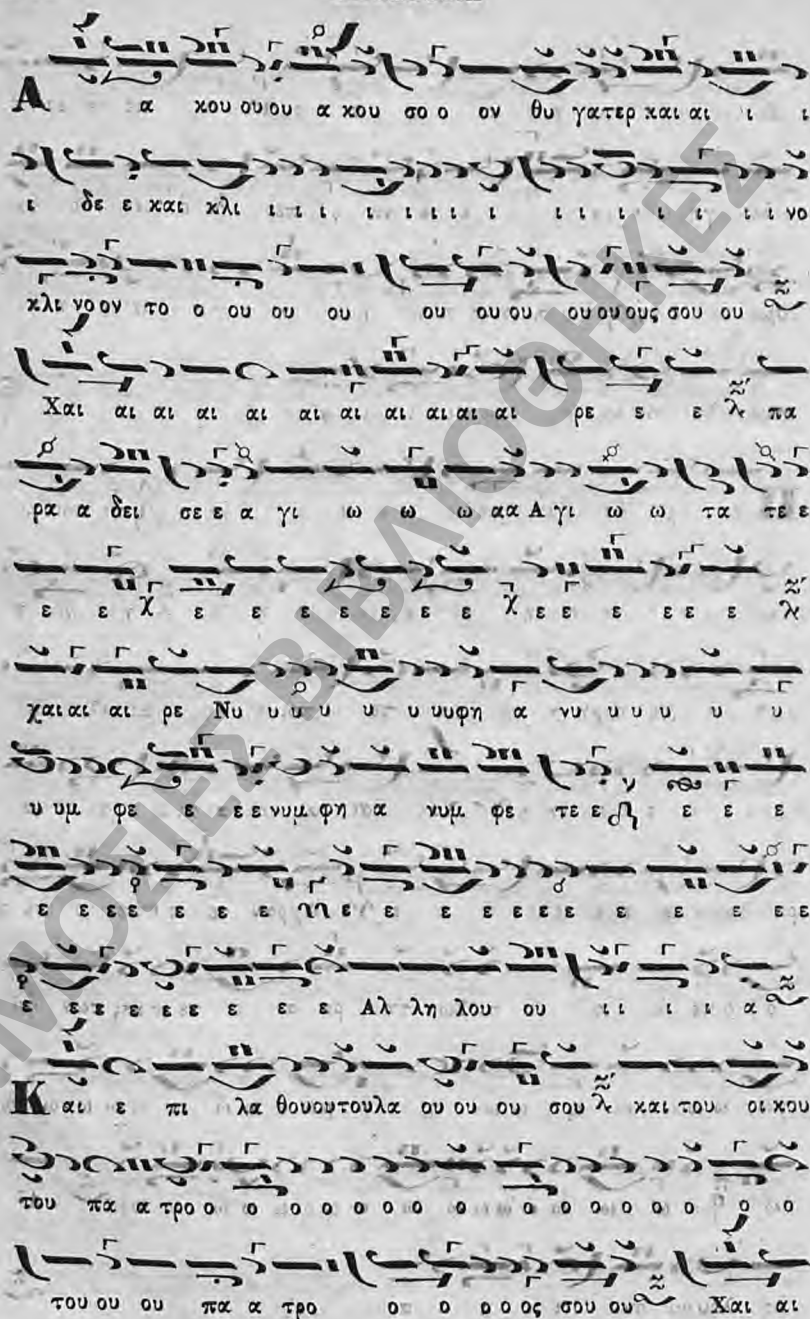 Α α κου ου ου α κου σο ο ον θυ γατερ και αι ι ι
ι δε ε και κλι ι ι ι ι ι ι ι ι ι ι ι ι ι ι ι νο
κλι νο ον το ο ου ου ου ου ου ου ου ου ους σου ου
Χαι αι αι αι αι αι αι αι αι αι αι ρε ε ε πα
ρα α δει σε ε α γι ω ω ω α α Α γι ω ω τα τε ε
ε ε χ ε ε ε ε ε ε ε χ ε ε ε ε ε ε
χαι αι αι ρε Νυ υ υ υ υ υ υ υφη α νυ υ υ υ υ υ
υ υμ φε ε ε ε νυμ φη α νυμ φε τε ε ε ε ε
ε ε ε ε ε ε ε ε ε ε ε ε ε ε ε ε ε ε
ε ε ε ε ε ε ε ε ε Αλ λη λου ου ι ι ι ι α
Κ αι ε πι λα θου ου του λα ου ου ου σου και του οι κου
του πα α τρο ο ο ο ο ο ο ο ο ο ο ο ο ο ο ο ο
του ου ου πα α τρο ο ο ο ο ος σου ου Χαι αι
ΔΗΜΟΣΙΕΣ ΒΙΒΛΙΟΘΗΚΕΣ